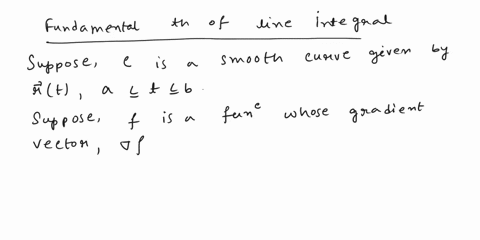 Fundamental th of line integral
Suppose, C is a smooth curve given by
r⃗(t), a ≤ t ≤ b.
Suppose, f is a funᶜ whose gradient
vector, ∇f